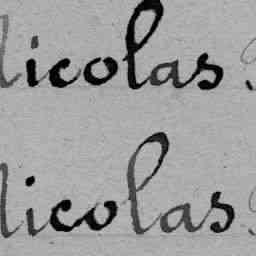 Nicolas
Nicolas